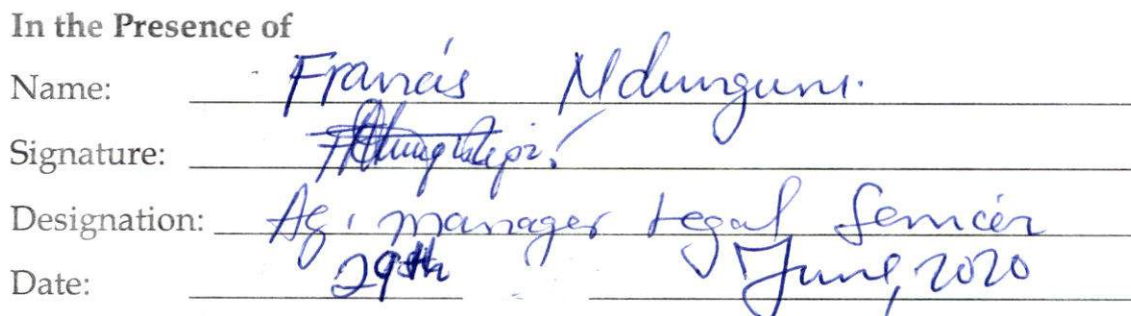 In the Presence of
Name: Francis Ndunguru.
Signature:
Designation: Ag. manager Legal Services
Date: 29th June, 2020